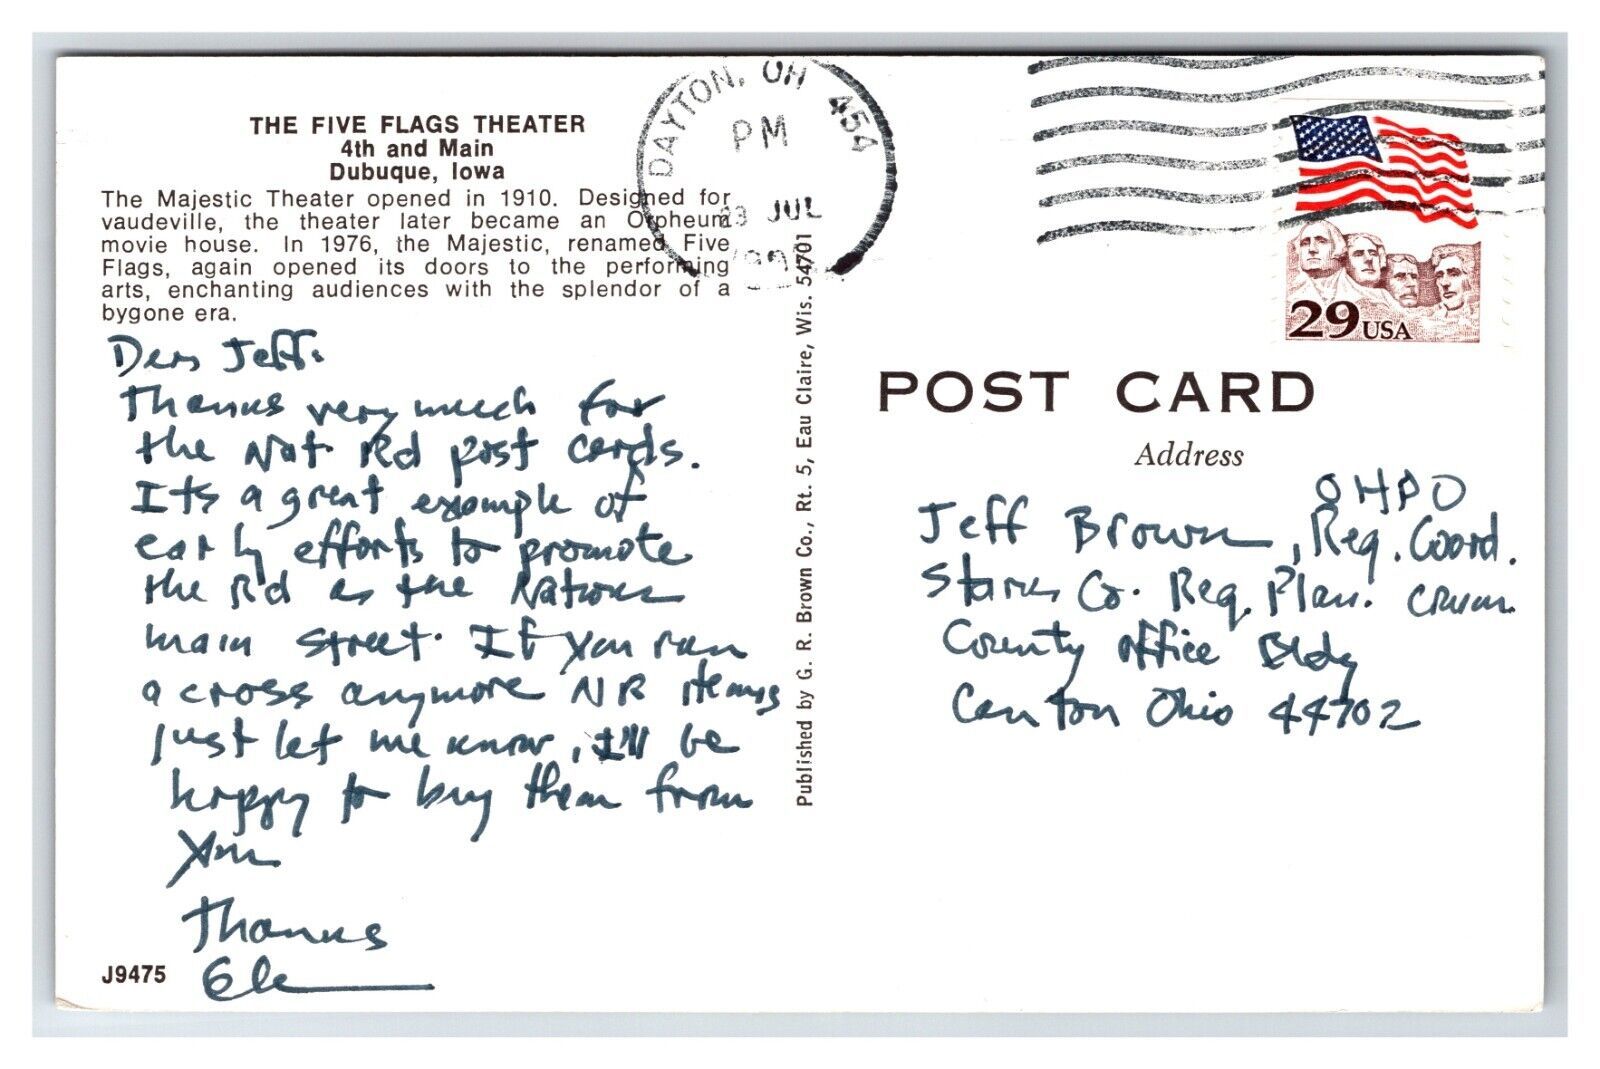 THE FIVE FLAGS THEATER
4th and Main
Dubuque, Iowa
The Majestic Theater opened in 1910. Designed for
vaudeville, the theater later became an Orpheum
movie house. In 1976, the Majestic, renamed Five
Flags, again opened its doors to the performing
arts, enchanting audiences with the splendor of a
bygone era.
Dear Jeff:
Thanks very much for
the Nat Rd post cards.
It's a great example of
early efforts to promote
the Rd as the Nations
main street. If you run
across anymore NR items
just let me know, I'll be
happy to buy them from
you
Thanks
J9475
Published by G. R. Brown Co., Rt. 5, Eau Claire, Wis. 54701
DAYTON, OH 454
PM
JUL
29 USA
POST CARD
Address
OHPO
Jeff Brown, Reg. Coord.
Stark Co. Reg. Plan. Comm.
County Office Bldg
Canton Ohio 44702